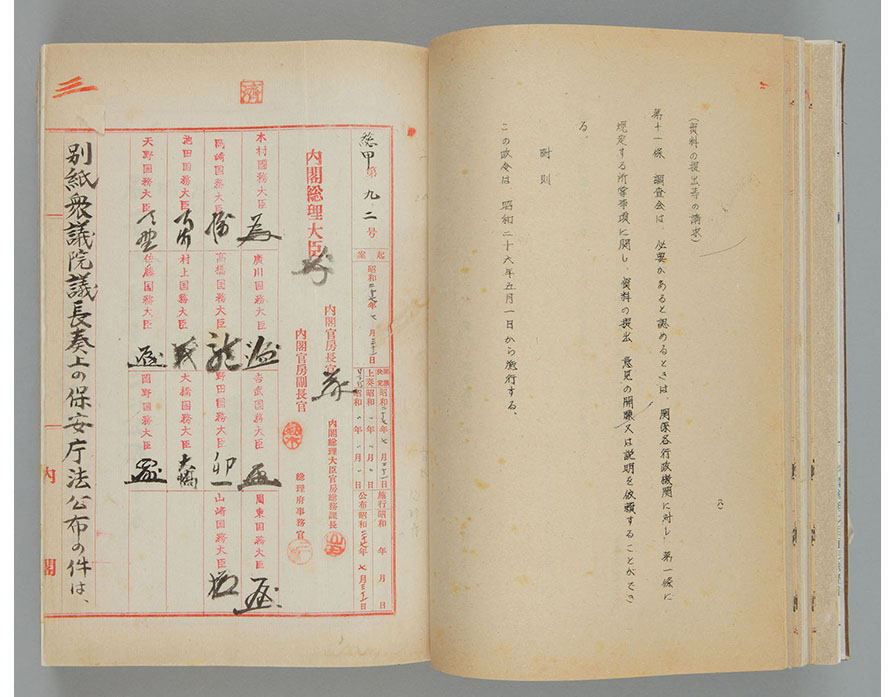 (資料の提出等の請求)
第十一條 調査会は、必要があると認めるときは、関係各行政機関に対し、第一條に
規定する所掌事項に関し、資料の提出、意見の開陳又は説明を依頼することができ
る。
附則
この政令は、昭和二十六年五月一日から施行する。
三
総甲第九二号
起案 昭和二十七年七月三十一日
閣議決定 昭和二十七年七月三十一日
上奏 昭和 年 月 日
施行 昭和 年 月 日
公布 昭和二十七年七月三十一日
内閣総理大臣
内閣官房長官
内閣官房副長官
内閣総理大臣官房総務課長
総理府事務官
木村国務大臣
廣川国務大臣
吉武国務大臣
周東国務大臣
岡崎国務大臣
高橋国務大臣
野田国務大臣
山崎国務大臣
池田国務大臣
村上国務大臣
大橋国務大臣
天野国務大臣
佐藤国務大臣
岡野国務大臣
別紙衆議院議長奏上の保安庁法公布の件は、
内閣